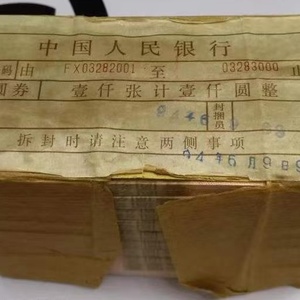 中国人民银行
码由 FX03282001 至 03283000 止
圆券 壹仟张计壹仟圆整
封捆员
拆封时请注意两侧事项
94年6月9日